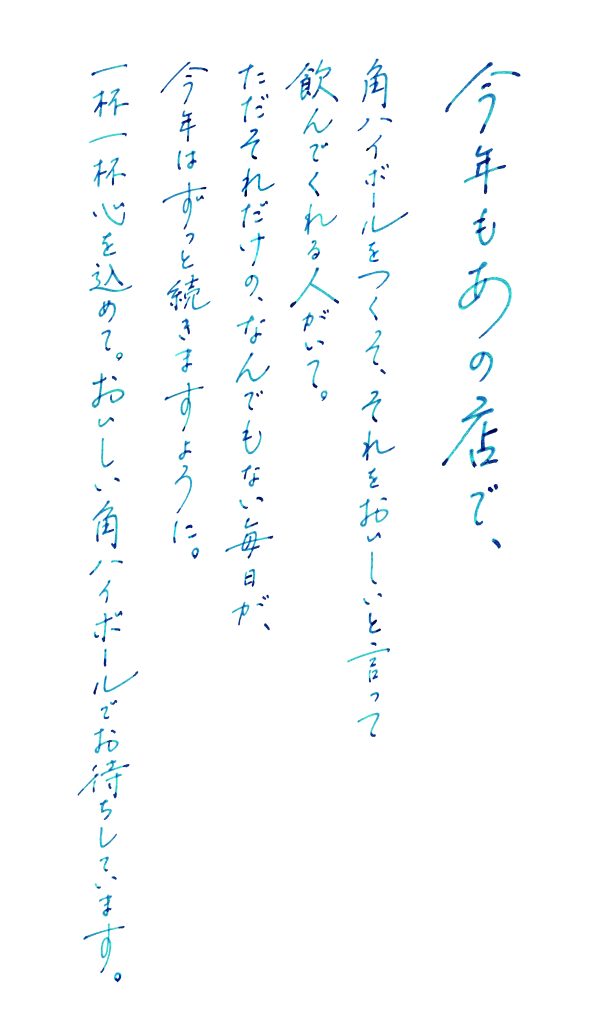 今年もあの店で、
角ハイボールをつくって、それをおいしいと言って
飲んでくれる人がいて。
ただそれだけの、なんでもない毎日が、
今年はずっと続きますように。
一杯一杯心を込めて。おいしい角ハイボールでお待ちしています。